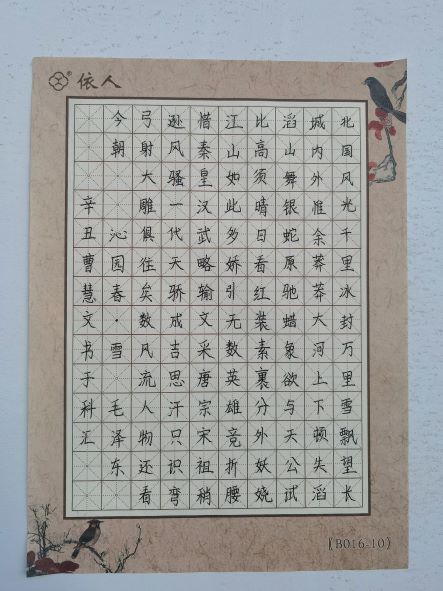 依人
北国风光千里冰封万里雪飘望长
城内外惟余莽莽大河上下顿失滔
滔山舞银蛇原驰蜡象欲与天公试
比高须晴日看红装素裹分外妖娆
江山如此多娇引无数英雄竞折腰
惜秦皇汉武略输文采唐宗宋祖稍
逊风骚一代天骄成吉思汗只识弯
弓射大雕俱往矣数风流人物还看
今朝 沁园春·雪 毛泽东
辛丑曹慧文书于科汇
(B016-10)